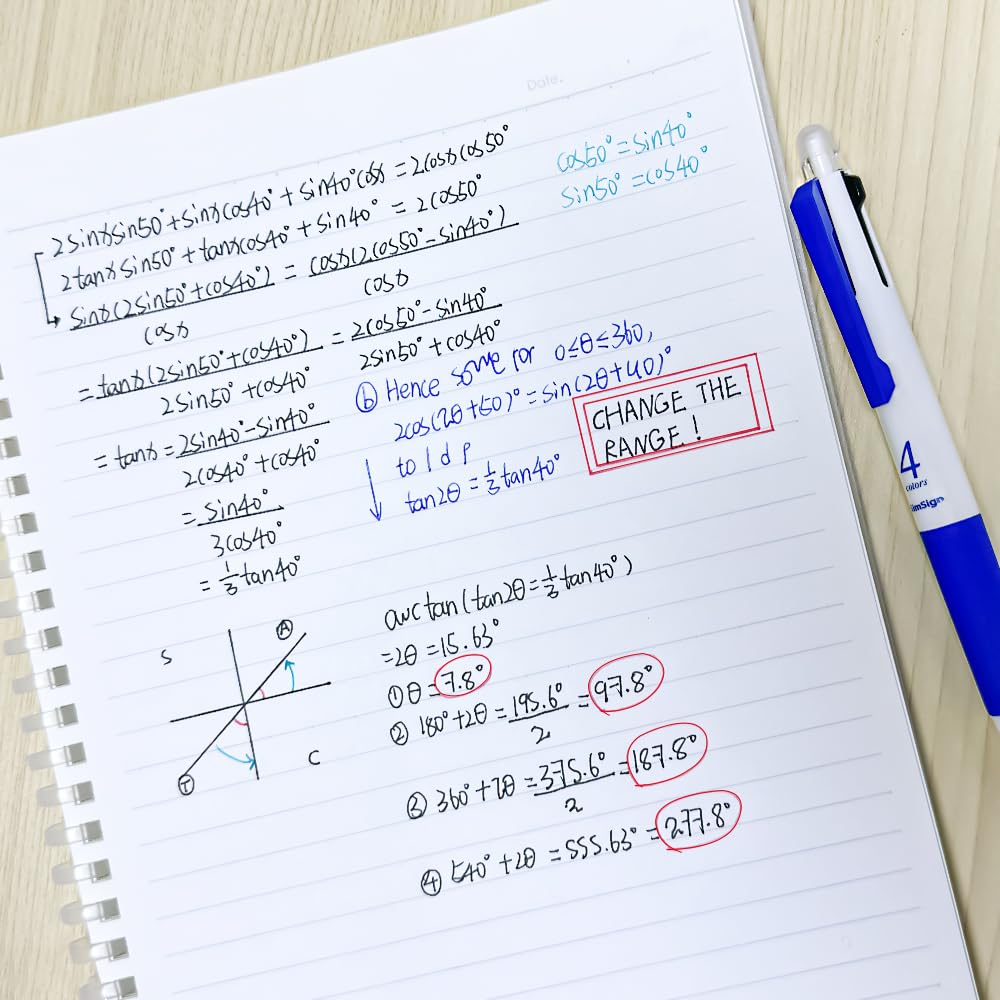 Date.
2sinxsin50°+sinxcos40°+sin40°cosx=2cosxcos50°
2tanxsin50°+tanxcos40°+sin40°=2cos50°
sinx(2sin50°+cos40°)/cosx = cosx(2cos50°-sin40°)/cosx
cos50°=sin40°
sin50°=cos40°
= tanx(2sin50°+cos40°)/2sin50°+cos40° = 2cos50°-sin40°/2sin50°+cos40°
= tanx=2sin40°-sin40°/2cos40°+cos40°
= sin40°/3cos40°
= 1/3 tan40°
ⓑ Hence some for 0≤θ≤360,
2cos(2θ+50)°=sin(2θ+40)°
to 1 d p
tan2θ=1/3tan40°
CHANGE THE
RANGE!
S
Ⓐ
Ⓣ
C
arctan(tan2θ=1/3tan40°)
=2θ=15.63°
①θ=7.8°
② 180°+2θ=195.6°/2=97.8°
③ 360°+2θ=375.6°/2=187.8°
④ 540°+2θ=555.63°=277.8°
4
colors